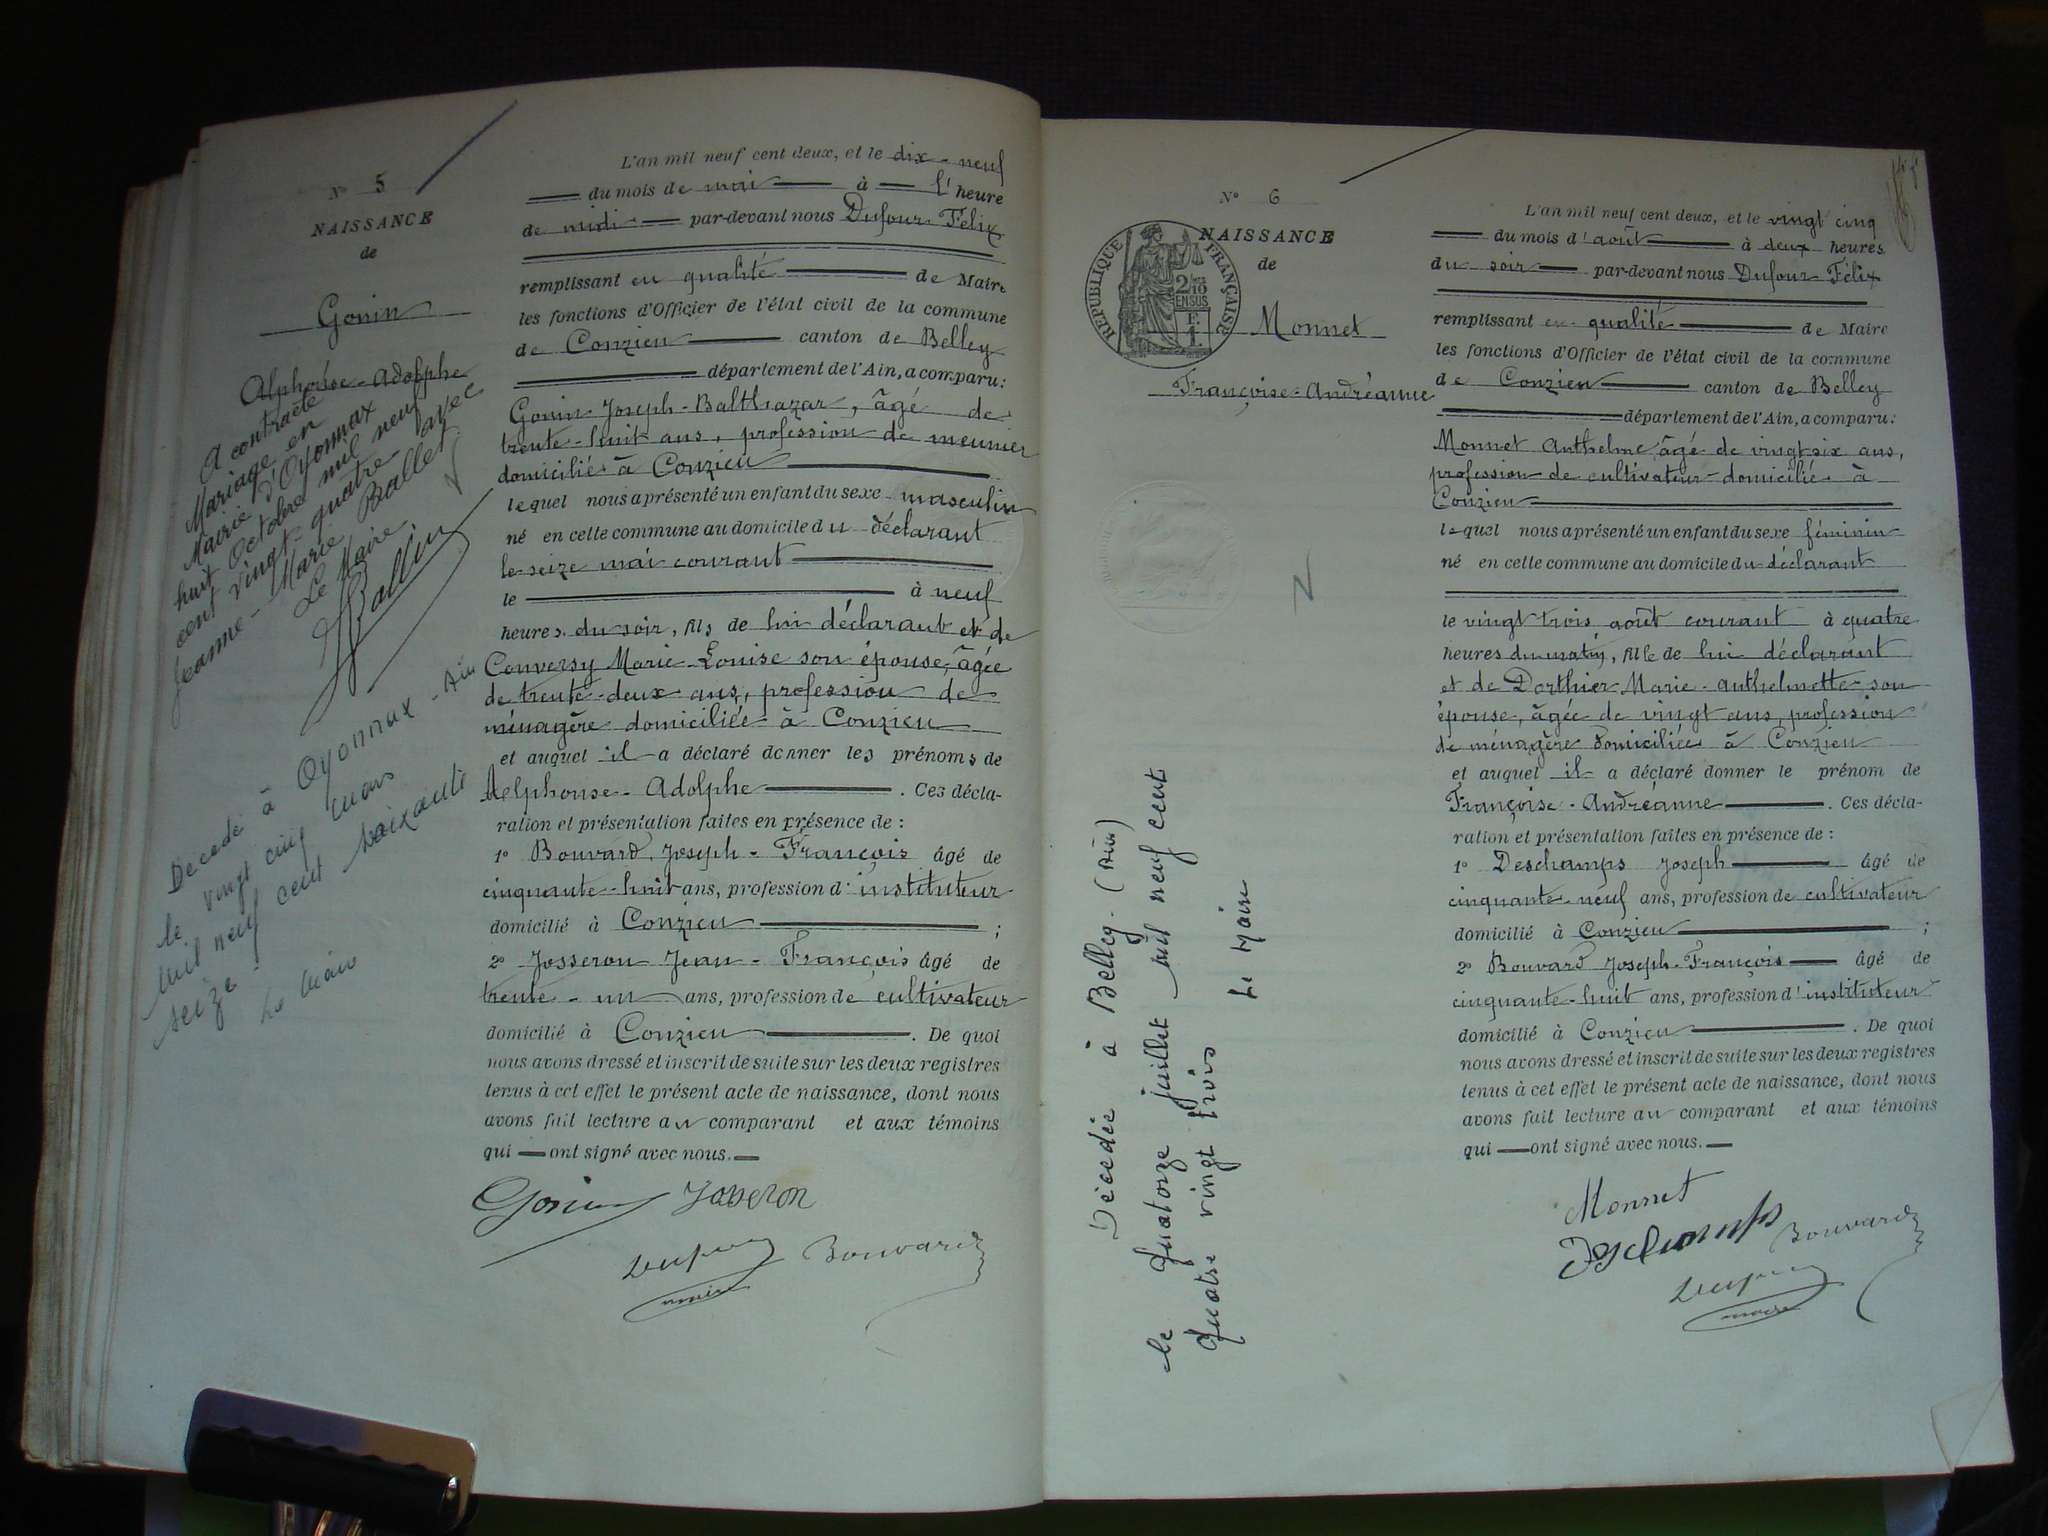 N° 5
NAISSANCE
de
Gonin
Alphonse-Adolphe
A contracté
Mariage en
Mairie d'Oyonnax
huit Octobre mil neuf
cent vingt-quatre avec
Jeanne-Marie Ballet
Le Maire
Décédé à Oyonnax - Ain
le vingt cinq mars
mil neuf cent soixante
seize -
Le Maire
L'an mil neuf cent deux, et le dix-neuf
du mois de mai à l'heure
de midi par-devant nous Dufour Félix
remplissant en qualité de Maire
les fonctions d'Officier de l'état civil de la commune
de Conzieu canton de Belley
département de l'Ain, a comparu:
Gonin Joseph-Balthazar, âgé de
trente-huit ans, profession de meunier
domicilié à Conzieu
lequel nous a présenté un enfant du sexe masculin
né en cette commune au domicile du déclarant
le seize mai courant
le à neuf
heures du soir, fils de lui déclarant et de
Conversy Marie-Louise son épouse, âgée
de trente-deux ans, profession de
ménagère domiciliée à Conzieu
et auquel il a déclaré donner les prénoms de
Alphonse-Adolphe. Ces décla-
ration et présentation faites en présence de :
1° Bouvard Joseph-François âgé de
cinquante-huit ans, profession d'instituteur
domicilié à Conzieu ;
2° Josseron Jean-François âgé de
trente-un ans, profession de cultivateur
domicilié à Conzieu. De quoi
nous avons dressé et inscrit de suite sur les deux registres
tenus à cet effet le présent acte de naissance, dont nous
avons fait lecture au comparant et aux témoins
qui ont signé avec nous.
Gonin Josseron
Dufour Bouvard
maire
N° 6
NAISSANCE
de
Monnet
Françoise-Andréanne
REPUBLIQUE FRANÇAISE
2/10
EN SUS
F.
1.
Décédée à Belley (Ain)
le quatorze juillet mil neuf cent
quatre vingt trois Le Maire
L'an mil neuf cent deux, et le vingt cinq
du mois d'août à deux heures
du soir par-devant nous Dufour Félix
remplissant en qualité de Maire
les fonctions d'Officier de l'état civil de la commune
de Conzieu canton de Belley
département de l'Ain, a comparu:
Monnet Anthelme, âgé de vingt-six ans,
profession de cultivateur domicilié à
Conzieu
lequel nous a présenté un enfant du sexe féminin
né en cette commune au domicile du déclarant
le vingt trois août courant à quatre
heures du matin, fille de lui déclarant
et de Dorthier Marie-Anthelmette son
épouse, âgée de vingt ans, profession
de ménagère domiciliée à Conzieu
et auquel il a déclaré donner le prénom de
Françoise-Andréanne. Ces décla-
ration et présentation faites en présence de :
1° Deschamps Joseph âgé de
cinquante-neuf ans, profession de cultivateur
domicilié à Conzieu ;
2° Bouvard Joseph-François âgé de
cinquante-huit ans, profession d'instituteur
domicilié à Conzieu. De quoi
nous avons dressé et inscrit de suite sur les deux registres
tenus à cet effet le présent acte de naissance, dont nous
avons fait lecture au comparant et aux témoins
qui ont signé avec nous.
Monnet
Deschamps Bouvard
Dufour
maire